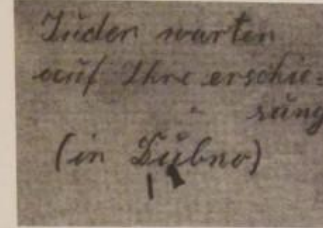 Juden warten
auf Ihre erschie=
sung
(in Dubno)